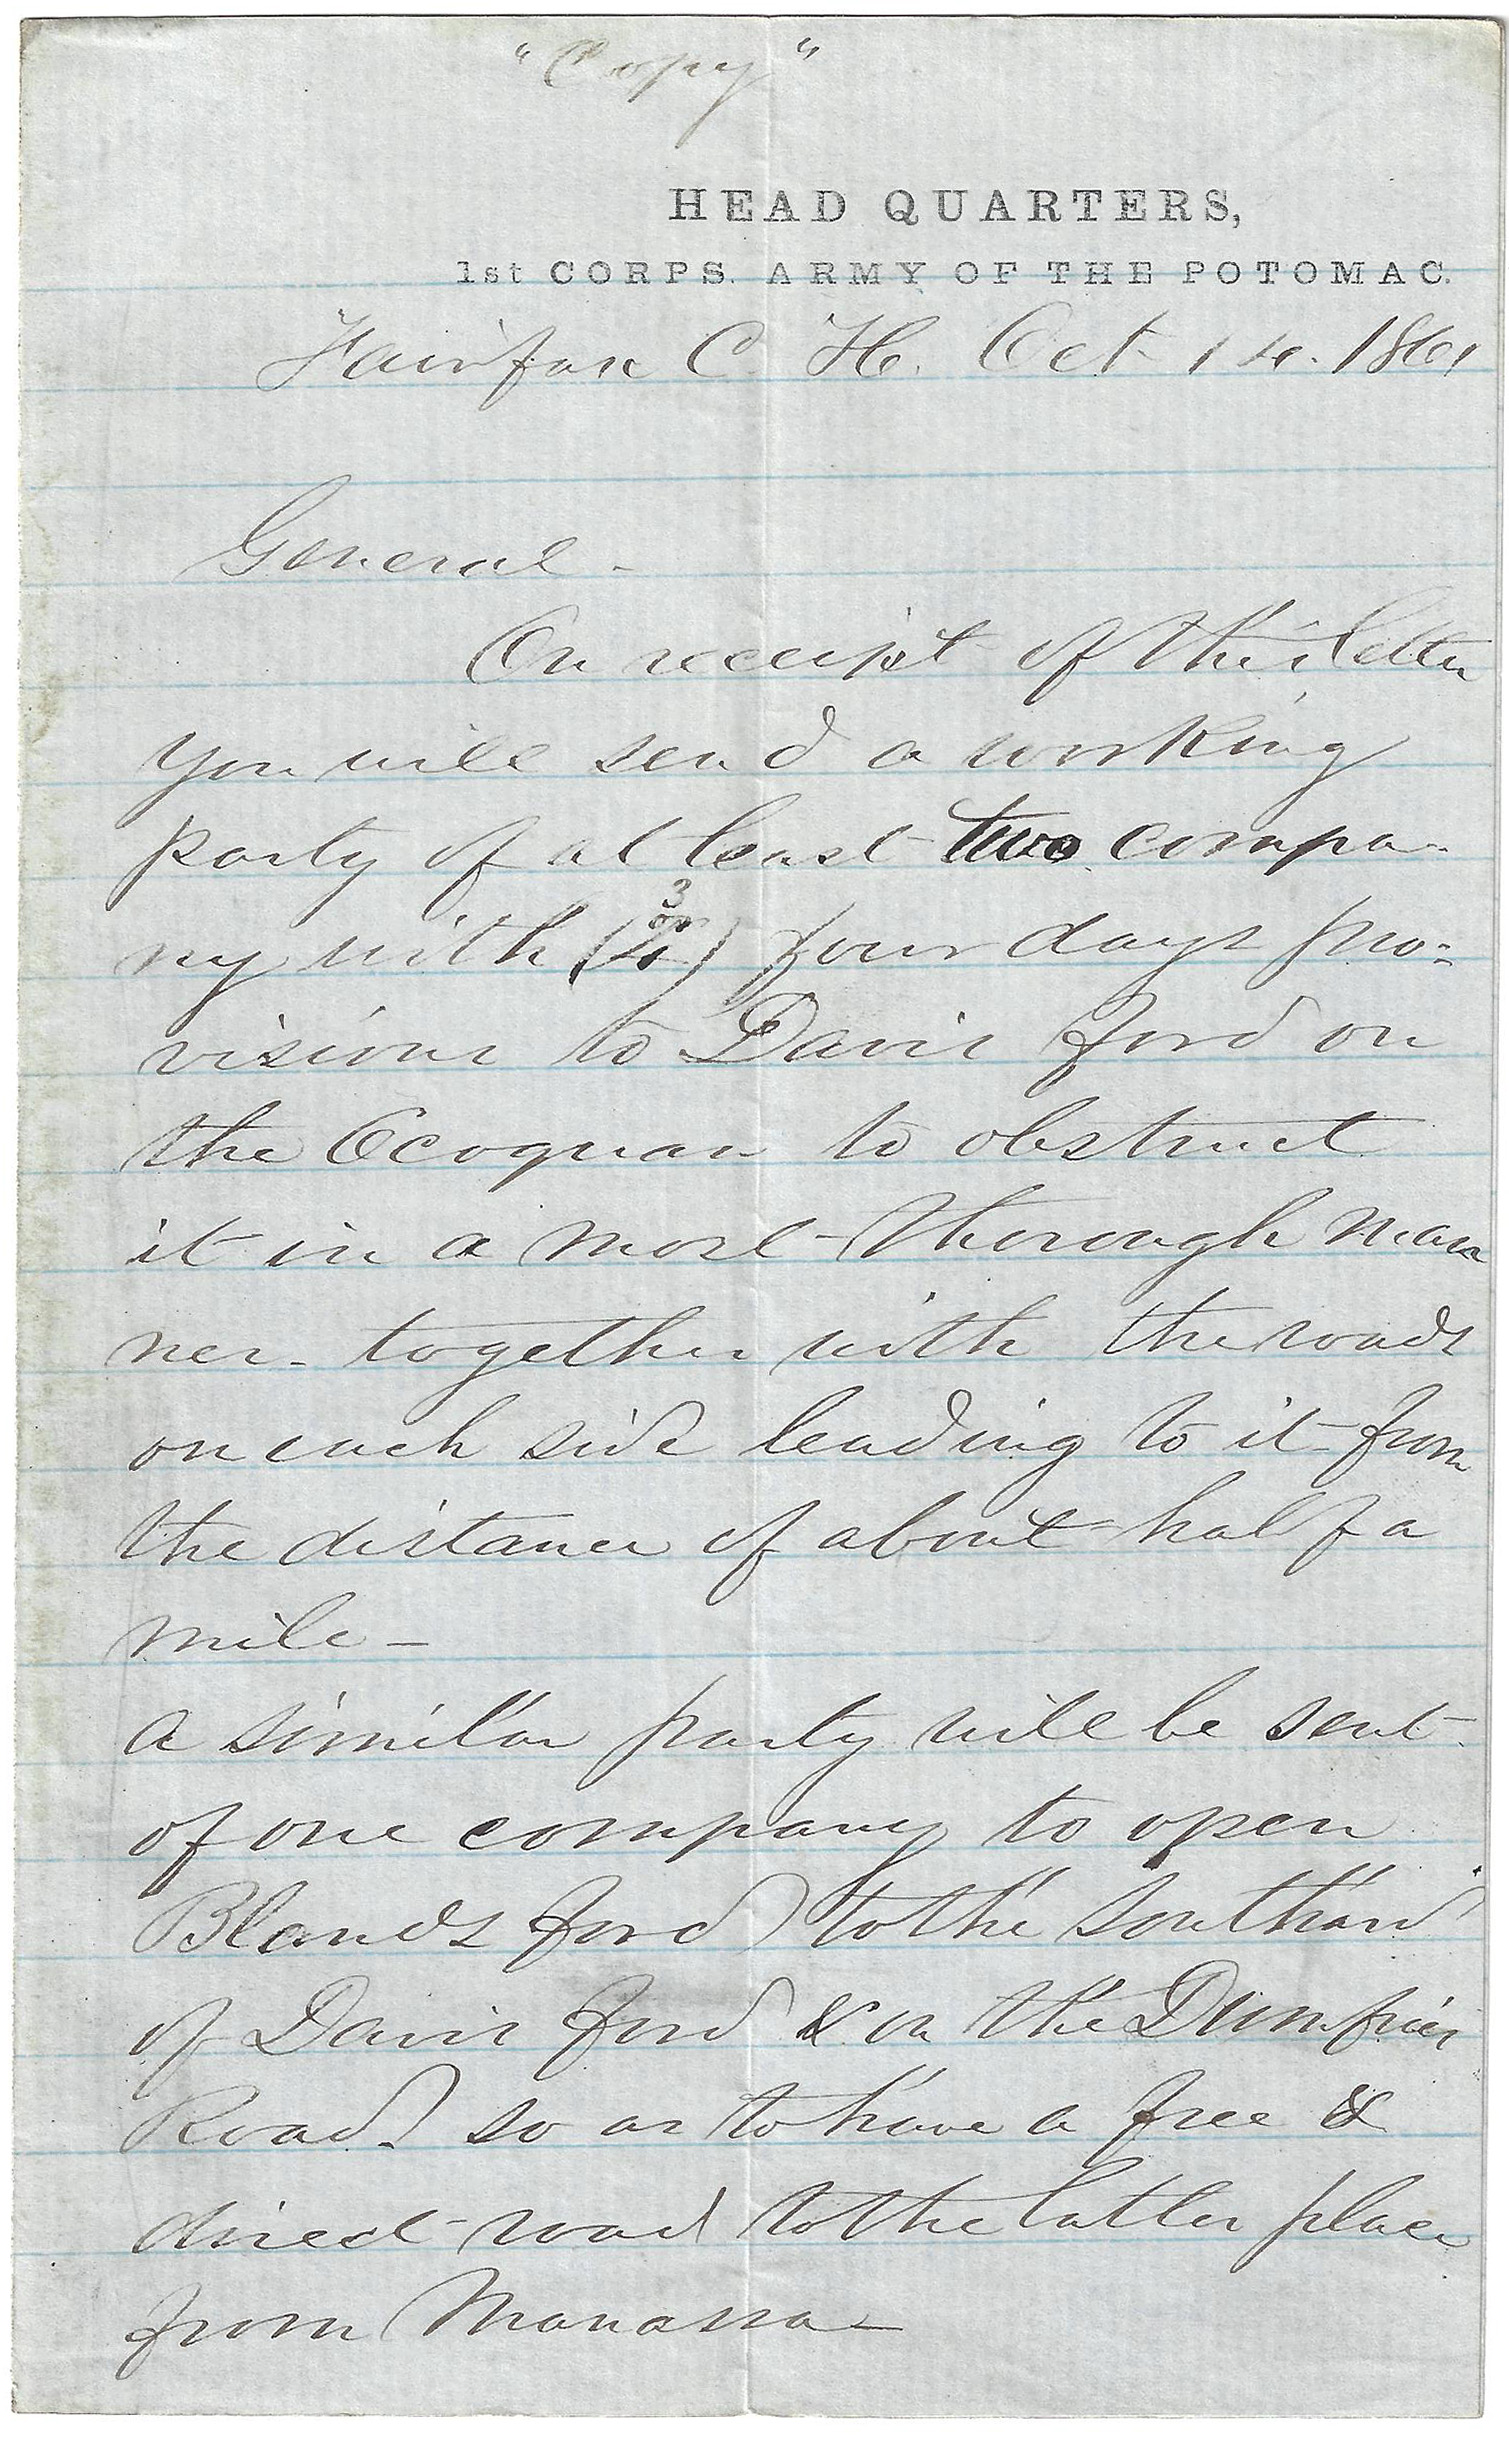 "Copy"
HEAD QUARTERS,
1st CORPS. ARMY OF THE POTOMAC.
Fairfax C. H. Oct 14. 1861
General -
On receipt of this letter
you will send a working
party of at least two compa-
ny with (3 or 4) four days pro-
visions to Davis ford on
the Ocoquan to obstruct
it in a most thorough man
ner - together with the roads
on each side leading to it from
the distance of about half a
mile -
a similar party will be sent
of one company to open
Blands ford to the Southard
of Davis ford & on the Dumfries
Road. so as to have a free &
direct road to the latter place
from Manassa -